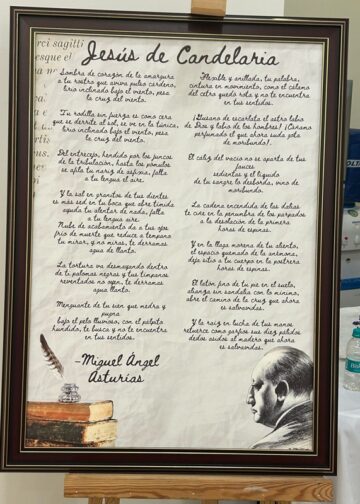 Jesús de Candelaria
Sombra de corazón de la amargura
a tu rostro que aviva pulso cárdeno,
lirio inclinado bajo el viento, pesa
la cruz del viento.
Tu rodilla sin fuerza es como cera
que se derrite al sol, se ve en la túnica,
lirio inclinado bajo el viento, pesa
la cruz del viento.
Del entrecejo, hendido por los juncos
de la tribulación, hasta los pómulos
se afila tu nariz de asfixia, falta
a tu lengua el aire.
Y la sal en granitos de tus dientes
es más sed en tu boca que abre tímida
aguda tu alentar de nada, falta
a tu lengua aire.
Nube de acabamiento da a tus ojos
frío de muerte que reduce a témpano
tu mirar, y no miras, te derramas
agua de llanto.
La tortura va desmayando dentro
de tu palomas negras y tus tímpanos
reventados no oyen, te derramas
agua llanto.
Menguante de tu sien que medra y
pugna
bajo el pelo lluvioso, con el párpado
hundido, te busca y no te encuentra
en tus sentidos.
-Miguel Ángel
Asturias
Flexible y anillada, tu palabra,
cintura en movimiento, como el cálamo
del cetro quedó rota y no te encuentra
en tus sentidos.
¡Gusano de escarlata el astro labio
de Dios y labio de los hombres! ¡Cánamo
perfumado el que ahora suda gota
de moribundo!
El cáliz del vacío no se aparta de tus
fauces
sedientas y el líquido
de tu sangre la desborda, vino de
moribundo.
La cadena encendida de los dalias
te ciñe en la penumbra de los párpados
a la desolación de la primera
horas de espinas.
Y en la llaga morena de tu aliento,
el espacio quemado de la anémona,
deja sitio a tu cuerpo en la postrera
horas de espinas.
El talón fino de tu pie en el suelo,
alianza sin sandalia con lo mínimo,
abre el camino de la cruz que ahora
es salvavidas.
Y la raíz en lucha de tus manos
retuerce como garfios sus diez pálidos
dedos asidos al madero que ahora
es salvavidas.